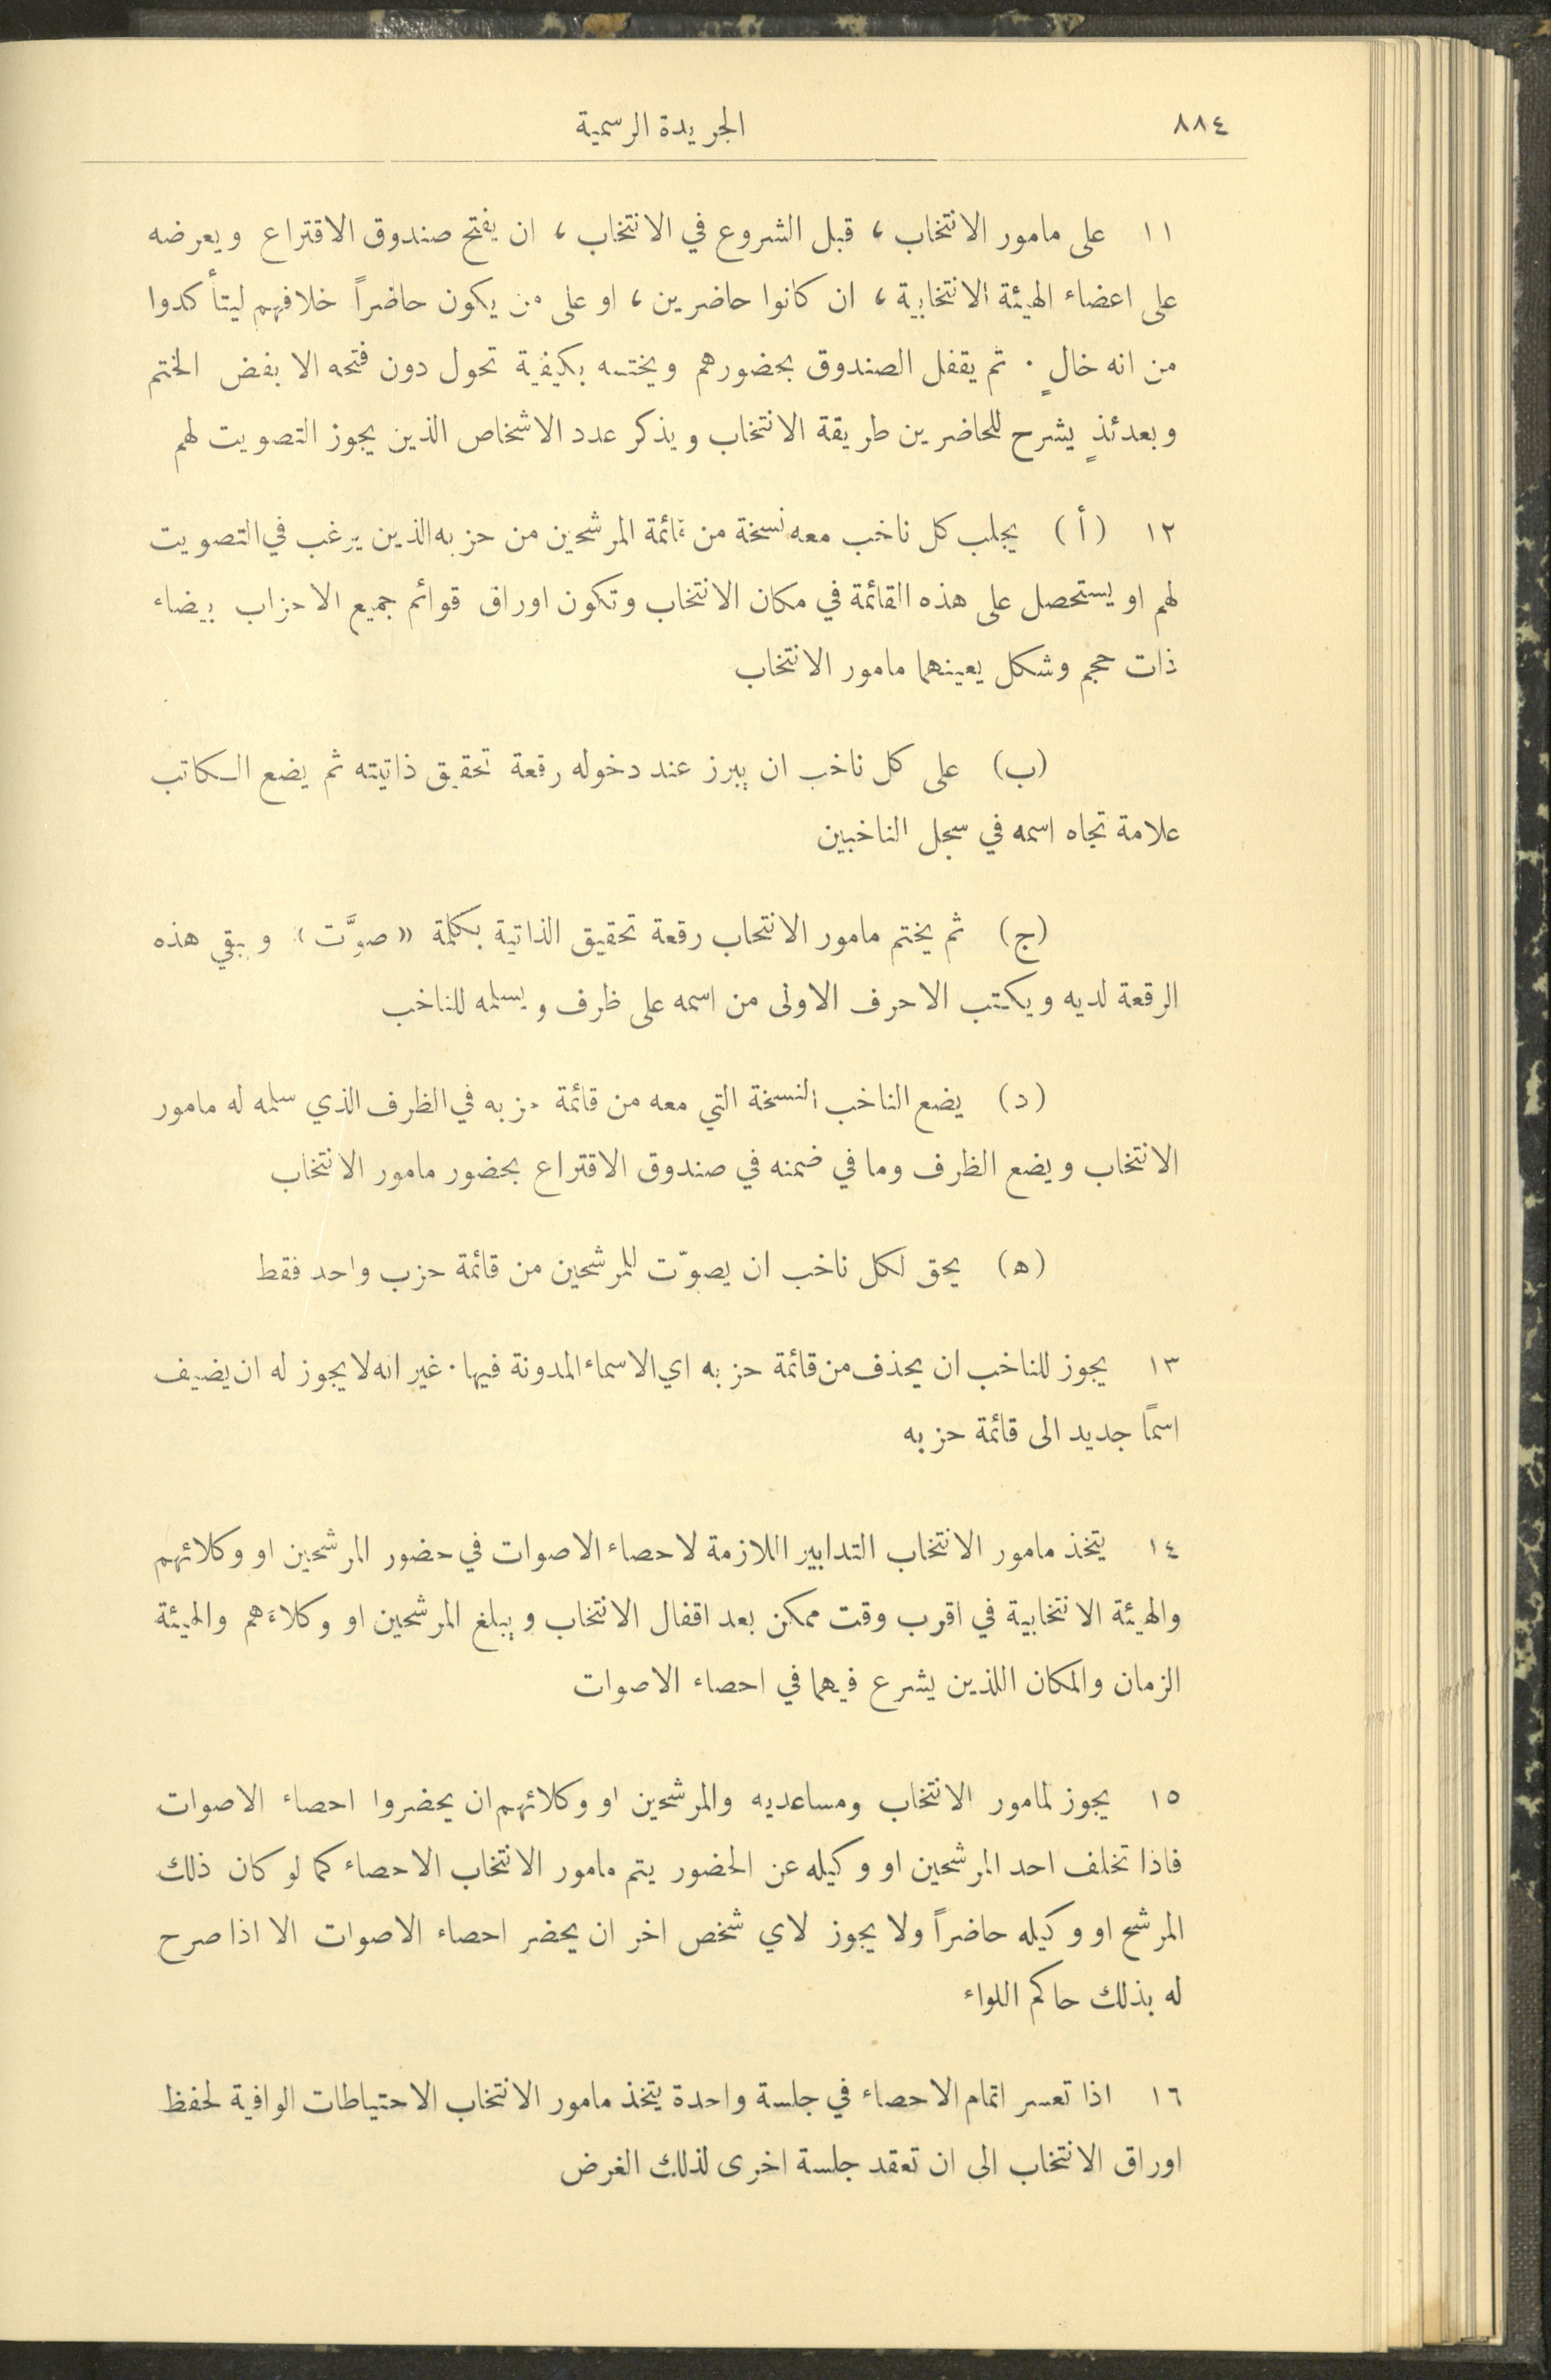 ٨٨٤ الجريدة الرسمية
١١ على مامور الانتخاب ، قبل الشروع في الانتخاب ، ان يفتح صندوق الاقتراع ويعرضه
على اعضاء الهيئة الانتخابية ، ان كانوا حاضرين ، او على من يكون حاضراً خلافهم ليتأكدوا
من انه خالٍ . ثم يقفل الصندوق بحضورهم ويختمه بكيفية تحول دون فتحه الا بفض الختم
وبعدئذٍ يشرح للحاضرين طريقة الانتخاب ويذكر عدد الاشخاص الذين يجوز التصويت لهم
١٢ (أ) يجلب كل ناخب معه نسخة من قائمة المرشحين من حزبه الذين يرغب في التصويت
لهم او يستحصل على هذه القائمة في مكان الانتخاب وتكون اوراق قوائم جميع الاحزاب بيضاء
ذات حجم وشكل يعينهما مامور الانتخاب
(ب) على كل ناخب ان يبرز عند دخوله رقعة تحقيق ذاتيته ثم يضع الكاتب
علامة تجاه اسمه في سجل الناخبين
(ج) ثم يختم مامور الانتخاب رقعة تحقيق الذاتية بكلمة «صوَّت» ويبقي هذه
الرقعة لديه ويكتب الاحرف الاولى من اسمه على ظرف ويسلمه للناخب
(د) يضع الناخب النسخة التي معه من قائمة حزبه في الظرف الذي سلمه له مامور
الانتخاب ويضع الظرف وما في ضمنه في صندوق الاقتراع بحضور مامور الانتخاب
(ه) يحق لكل ناخب ان يصوّت للمرشحين من قائمة حزب واحد فقط
١٣ يجوز للناخب ان يحذف من قائمة حزبه اي الاسماء المدونة فيها . غير انه لا يجوز له ان يضيف
اسمًا جديد الى قائمة حزبه
١٤ يتخذ مامور الانتخاب التدابير اللازمة لاحصاء الاصوات في حضور المرشحين او وكلائهم
والهيئة الانتخابية في اقرب وقت ممكن بعد اقفال الانتخاب ويبلغ المرشحين او وكلاءهم والهيئة
الزمان والمكان اللذين يشرع فيهما في احصاء الاصوات
١٥ يجوز لمامور الانتخاب ومساعديه والمرشحين او وكلائهم ان يحضروا احصاء الاصوات
فاذا تخلف احد المرشحين او وكيله عن الحضور يتم مامور الانتخاب الاحصاء كما لو كان ذلك
المرشح او وكيله حاضراً ولا يجوز لاي شخص اخر ان يحضر احصاء الاصوات الا اذا صرح
له بذلك حاكم اللواء
١٦ اذا تعسر اتمام الاحصاء في جلسة واحدة يتخذ مامور الانتخاب الاحتياطات الوافية لحفظ
اوراق الانتخاب الى ان تعقد جلسة اخرى لذلك الغرض